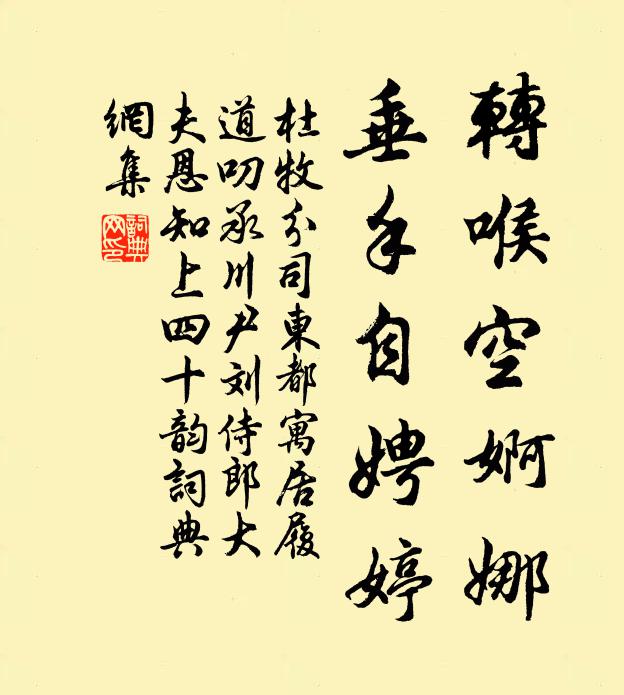 轉喉空婀娜
垂手自娉婷
杜牧分司東都寓居履
道叨承川尹刘侍郎大
夫恩知上四十韵詞典
網集
詞典
网印